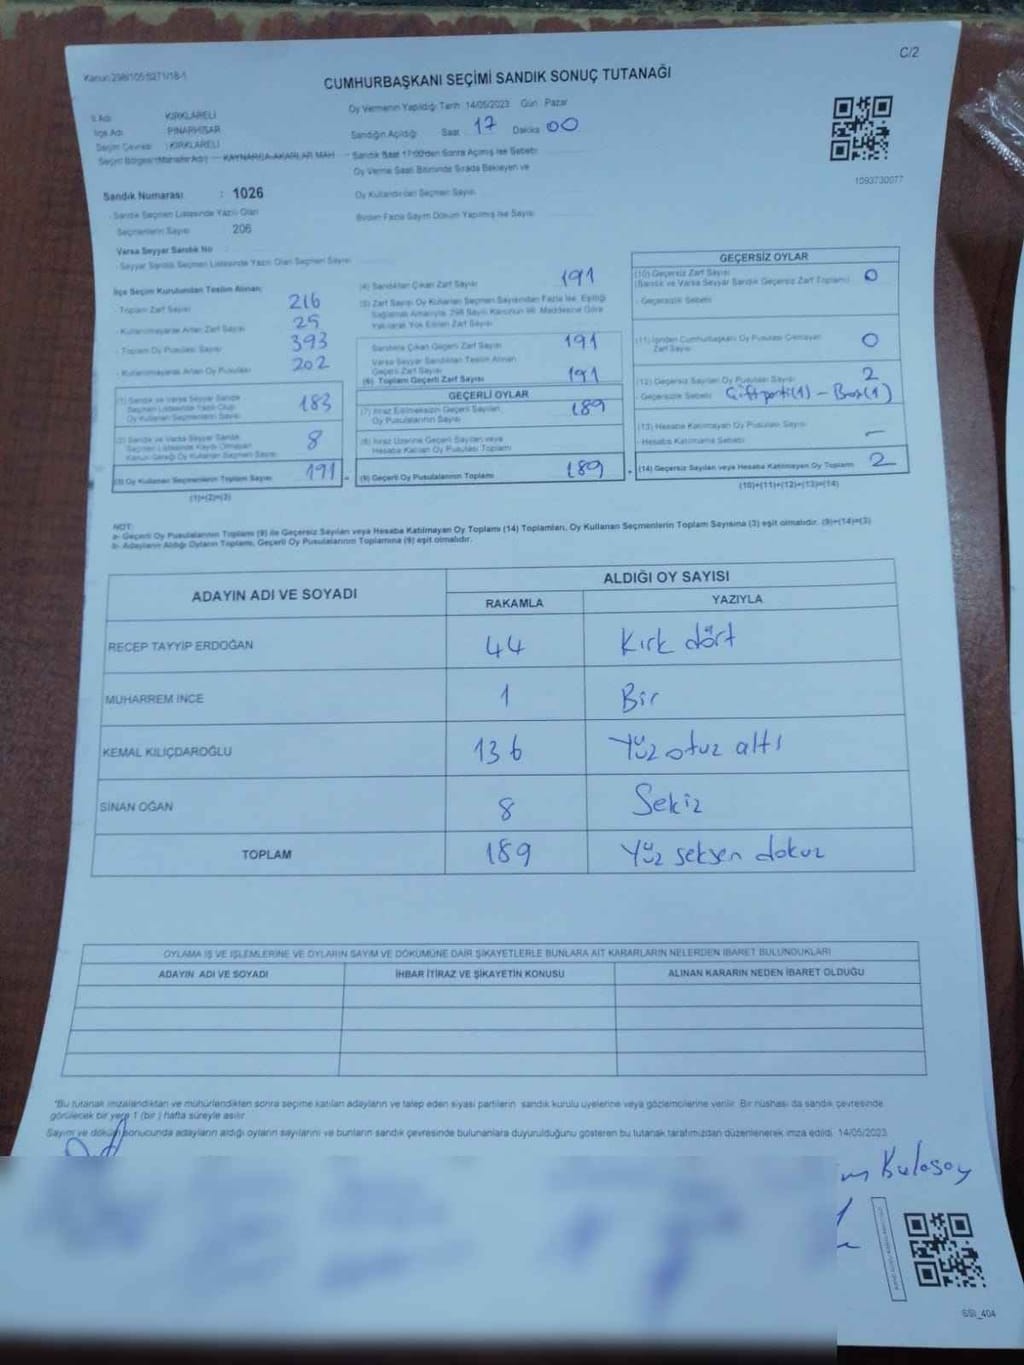 C/2
Kanun:298/105;5271/18-1
CUMHURBAŞKANI SEÇİMİ SANDIK SONUÇ TUTANAĞI
İl Adı : KIRKLARELİ
İlçe Adı : PINARHİSAR
Seçim Çevresi : KIRKLARELİ
Seçim Bölgesi (Mahalle Adı) : KAYNARCA-AKARLAR MAH
Sandık Numarası : 1026
- Sandık Seçmen Listesinde Yazılı Olan
Seçmenlerin Sayısı 206
Varsa Seyyar Sandık No
- Seyyar Sandık Seçmen Listesinde Yazılı Olan Seçmen Sayısı
Oy Vermenin Yapıldığı Tarih : 14/05/2023 Gün : Pazar
Sandığın Açıldığı Saat 17 Dakika 00
Sandık Saat 17:00'den Sonra Açılmış İse Sebebi
Oy Verme Saati Bitiminde Sırada Bekleyen ve
Oy Kullandırılan Seçmen Sayısı
Birden Fazla Sayım Döküm Yapılmış İse Sayısı
1093730077
İlçe Seçim Kurulundan Teslim Alınan:
- Toplam Zarf Sayısı 216
- Kullanılmayarak Artan Zarf Sayısı 25
- Toplam Oy Pusulası Sayısı 393
- Kullanılmayarak Artan Oy Pusulası 202
(1) Sandık ve Varsa Seyyar Sandık
Seçmen Listesinde Yazılı Olup
Oy Kullanan Seçmenlerin Sayısı 183
(2) Sandık ve Varsa Seyyar Sandık
Seçmen Listesinde Kaydı Olmayan
Kanun Gereği Oy Kullanan Seçmen Sayısı 8
(3) Oy Kullanan Seçmenlerin Toplam Sayısı 191
(1)+(2)=(3)
(4) Sandıktan Çıkan Zarf Sayısı 191
(5) Zarf Sayısı Oy Kullanan Seçmen Sayısından Fazla İse, Eşitliği
Sağlamak Amacıyla, 298 Sayılı Kanunun 98. Maddesine Göre
Yakılarak Yok Edilen Zarf Sayısı
Sandıkta Çıkan Geçerli Zarf Sayısı 191
Varsa Seyyar Sandıktan Teslim Alınan
Geçerli Zarf Sayısı
(6) Toplam Geçerli Zarf Sayısı 191
GEÇERLİ OYLAR
(7) İtiraz Edilmeksizin Geçerli Sayılan
Oy Pusulasının Sayısı 189
(8) İtiraz Üzerine Geçerli Sayılan veya
Hesaba Katılan Oy Pusulası Toplamı
(9) Geçerli Oy Pusulalarının Toplamı 189
GEÇERSİZ OYLAR
(10) Geçersiz Zarf Sayısı
(Sandık ve Varsa Seyyar Sandık Geçersiz Zarf Toplamı) 0
- Geçersizlik Sebebi
(11) İçinden Cumhurbaşkanı Oy Pusulası Çıkmayan
Zarf Sayısı 0
(12) Geçersiz Sayılan Oy Pusulası Sayısı 2
- Geçersizlik Sebebi Çift parti(1) –
(13) Hesaba Katılmayan Oy Pusulası Sayısı –
- Hesaba Katılmama Sebebi
(14) Geçersiz Sayılan veya Hesaba Katılmayan Oy Toplamı 2
(10)+(11)+(12)+(13)=(14)
NOT:
a- Geçerli Oy Pusulalarının Toplamı (9) ile Geçersiz Sayılan veya Hesaba Katılmayan Oy Toplamı (14) Toplamları, Oy Kullanan Seçmenlerin Toplam Sayısına (3) eşit olmalıdır. (9)+(14)=(3)
b- Adayların Aldığı Oyların Toplamı, Geçerli Oy Pusulalarının Toplamına (9) eşit olmalıdır.
ADAYIN ADI VE SOYADI
ALDIĞI OY SAYISI
RAKAMLA YAZIYLA
RECEP TAYYİP ERDOĞAN 44 Kırk dört
MUHARREM İNCE 1 Bir
KEMAL KILIÇDAROĞLU 136 Yüz otuz altı
SİNAN OĞAN 8 Sekiz
TOPLAM 189 Yüz seksen dokuz
OYLAMA İŞ VE İŞLEMLERİNE VE OYLARIN SAYIM VE DÖKÜMÜNE DAİR ŞİKAYETLERLE BUNLARA AİT KARARLARIN NELERDEN İBARET BULUNDUKLARI
ADAYIN ADI VE SOYADI İHBAR İTİRAZ VE ŞİKAYETİN KONUSU ALINAN KARARIN NEDEN İBARET OLDUĞU
*Bu tutanak imzalandıktan ve mühürlendikten sonra seçime katılan adayların ve talep eden siyasi partilerin sandık kurulu üyelerine veya gözlemcilerine verilir. Bir nüshası da sandık çevresinde
görülecek bir yere 1 (bir) hafta süreyle asılır.
Sayım ve döküm sonucunda adayların aldığı oyların sayılarını ve bunların sandık çevresinde bulunanlara duyurulduğunu gösteren bu tutanak tarafımızdan düzenlenerek imza edildi. 14/05/2023
Kulasoy
SSI_404